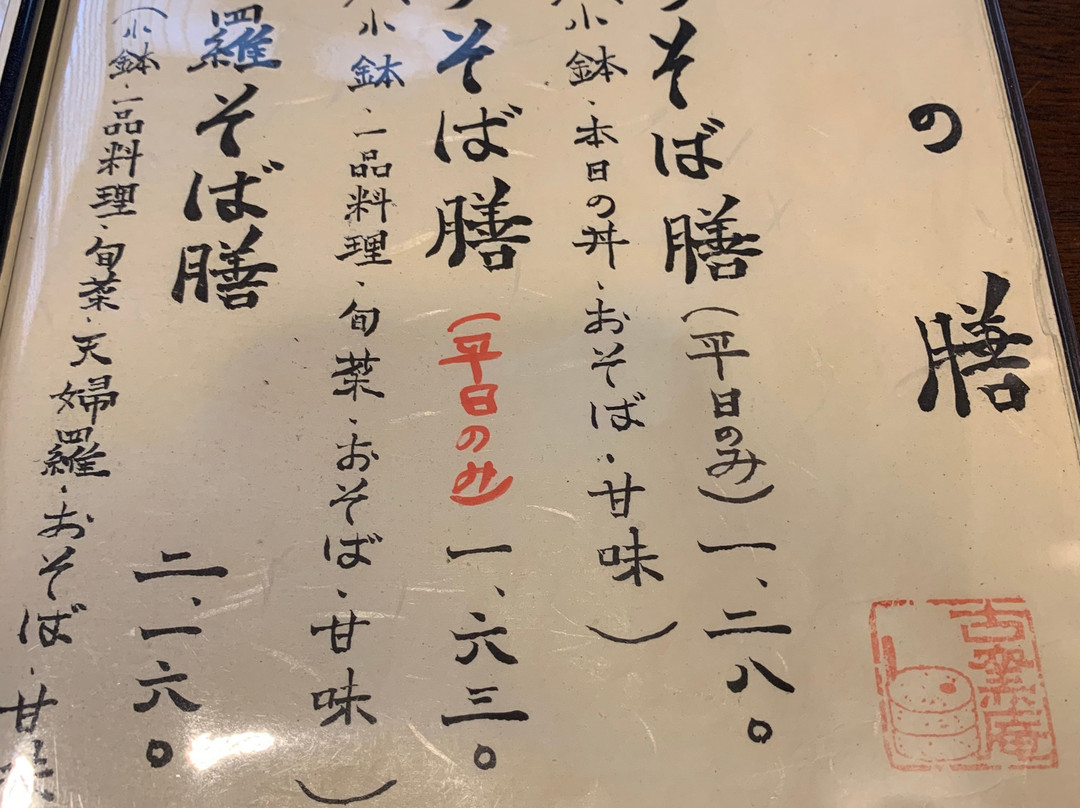 の膳
そば膳(平日のみ)一、二八〇
小鉢・本日の丼・おそば・甘味)
そば膳(平日のみ)一、六三〇
小鉢・一品料理・旬菜・おそば・甘味)
羅そば膳 二、一六〇
(小鉢・一品料理・旬菜・天婦羅・おそば・甘味
古窯庵